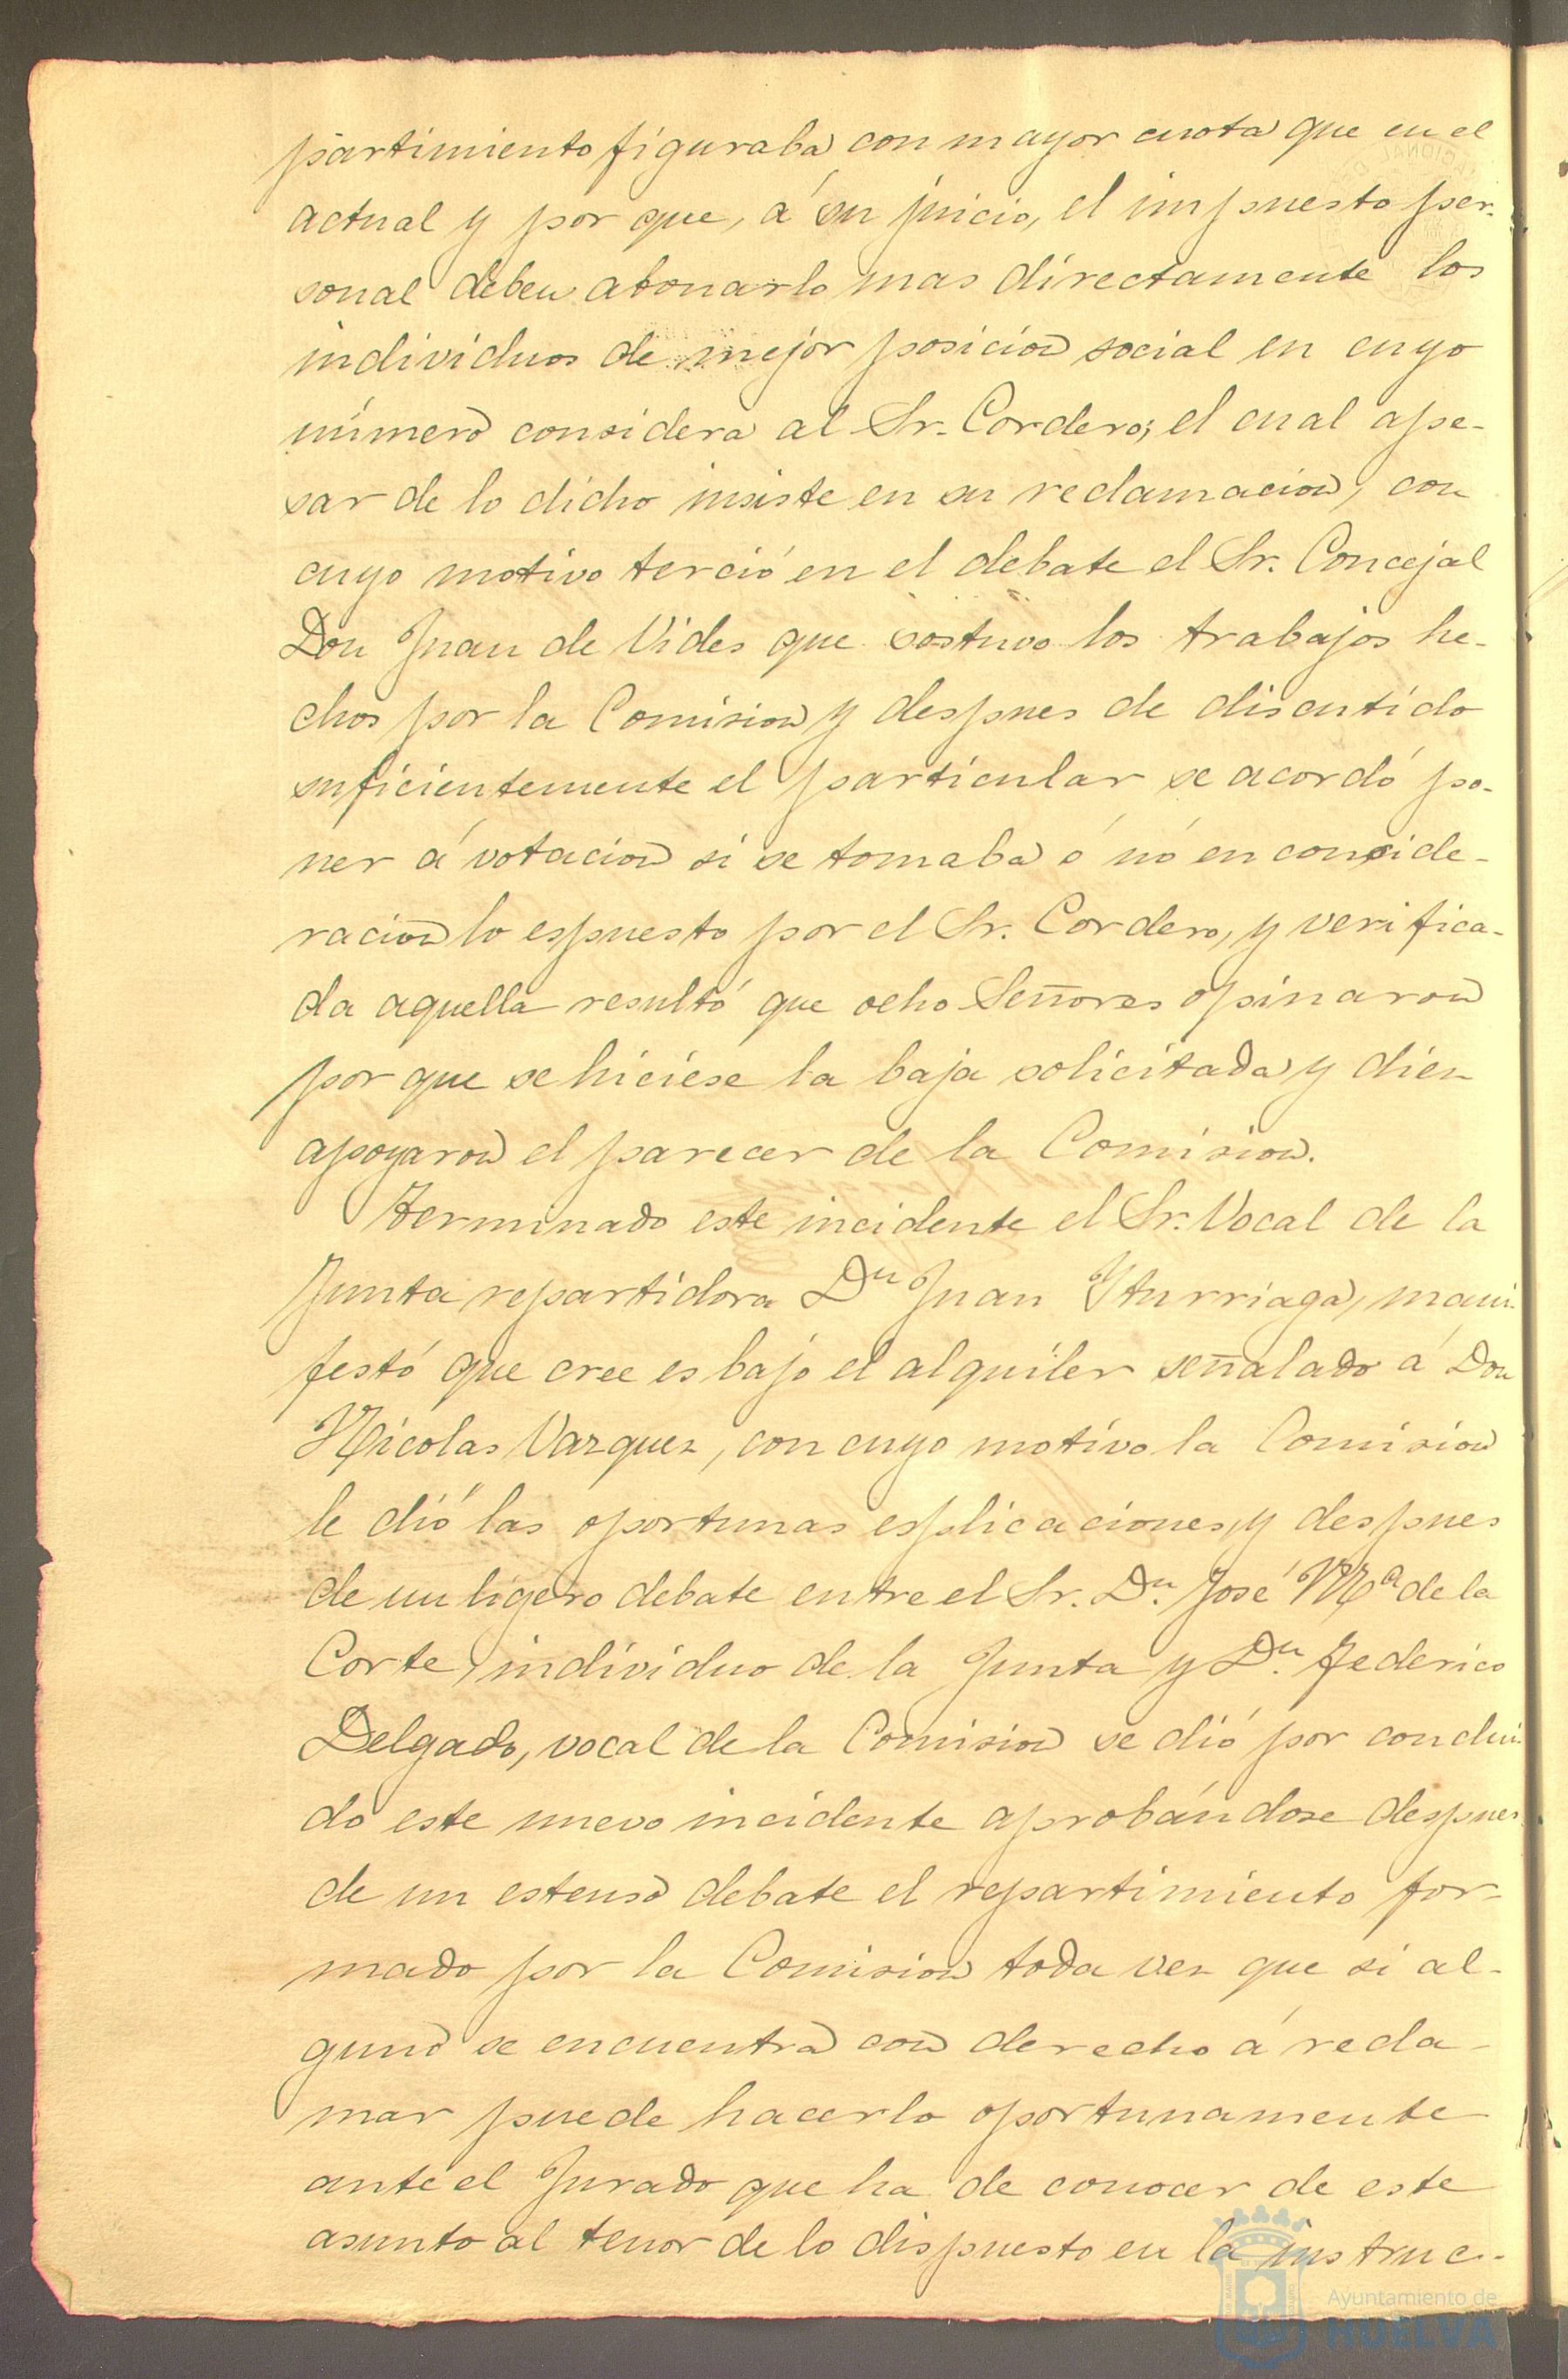 partimiento figuraba con mayor cuota que en el
actual y por que, á su juicio, el impuesto per-
sonal deben abonarlo mas directamente los
individuos de mejor posicion social en cuyo
número considera al Sr. Cordero; el cual ape-
sar de lo dicho insiste en su reclamacion, con
cuyo motivo terció en el debate el Sr. Concejal
Don Juan de Vides que sostuvo los trabajos he-
chos por la Comision y despues de discutido
suficientemente el particular se acordó po-
ner á votacion si se tomaba ó nó en conside-
racion lo espuesto por el Sr. Cordero, y verifica-
da aquella resultó que ocho Señores opinaron
por que se hiciese la baja solicitada y diez
apoyaron el parecer de la Comision.
Terminado este incidente el Sr. Vocal de la
Junta repartidora Dn Juan Yturriaga, mani-
festó que cree es bajo el alquiler señalado á Don
Nicolas Vazquez, con cuyo motivo la Comision
le dió las oportunas esplicaciones, y despues
de un ligero debate entre el Sr. Dn. José Mª de la
Corte, individuo de la Junta y Dn. Federico
Delgado, vocal de la Comision se dió por conclui-
do este nuevo incidente aprobándose despues
de un estenso debate el repartimiento for-
mado por la Comision toda vez que si al-
guno se encuentra con derecho á recla-
mar puede hacerlo oportunamente
ante el Jurado que ha de conocer de este
asunto al tenor de lo dispuesto en la instruc-
Ayuntamiento de
HUELVA